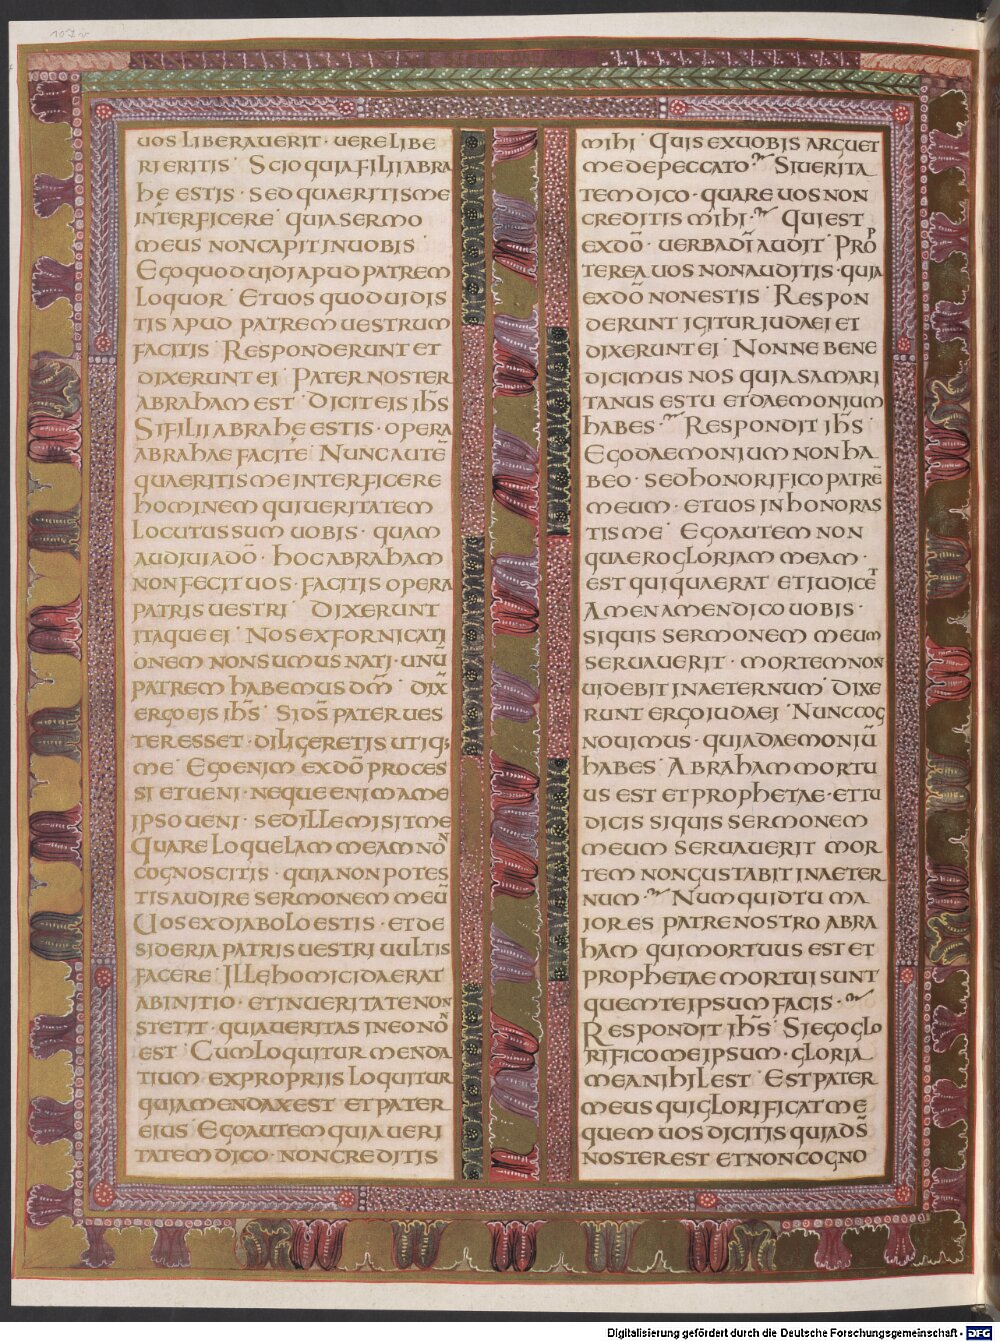 107v
UOS LIBERAUERIT · UERE LIBE
RI ERITIS · SCIO QUIA FILII ABRA
HĘ ESTIS · SED QUAERITIS ME
INTERFICERE · QUIA SERMO
MEUS NON CAPIT IN UOBIS ·
EGO QUOD UIDI APUD PATREM
LOQUOR · ET UOS QUOD UIDIS
TIS APUD PATREM UESTRUM
FACITIS · RESPONDERUNT ET
DIXERUNT EI · PATER NOSTER
ABRAHAM EST · DICIT EIS IHS̄
SI FILII ABRAHĘ ESTIS · OPERA
ABRAHAE FACITE · NUNC AUTĒ
QUAERITIS ME INTERFICERE
HOMINEM QUI UERITATEM
LOCUTUS SUM UOBIS · QUAM
AUDIUI A DŌ · HOC ABRAHAM
NON FECIT UOS · FACITIS OPERA
PATRIS UESTRI · DIXERUNT
ITAQUE EI · NOS EX FORNICATI
ONEM NON SUMUS NATI · UNŪ
PATREM HABEMUS DM̄ · DIX̄
ERGO EIS IHS̄ · SI DS̄ PATER UES
TER ESSET · DILIGERETIS UTIQ;
ME · EGO ENIM EX DŌ PROCES
SI ET UENI · NEQUE ENIM A ME
IPSO UENI · SED ILLE MISIT ME
QUARE LOQUELAM MEAM NON
COGNOSCITIS · QUIA NON POTES
TIS AUDIRE SERMONEM MEŪ
UOS EX DIABOLO ESTIS · ET DE
SIDERIA PATRIS UESTRI UULTIS
FACERE · ILLE HOMICIDA ERAT
AB INITIO · ET IN UERITATE NON
STETIT · QUIA UERITAS IN EO NON
EST · CUM LOQUITUR MENDA
TIUM EX PROPRIIS LOQUITUR
QUIA MENDAX EST ET PATER
EIUS · EGO AUTEM QUIA UERI
TATEM DICO · NON CREDITIS
MIHI · QUIS EX UOBIS ARGUET
ME DE PECCATO · SI UERITA
TEM DICO · QUARE UOS NON
CREDITIS MIHI · QUI EST
EX DŌ · UERBA DĪ AUDIT · PROP
TEREA UOS NON AUDITIS · QUIA
EX DŌ NON ESTIS · RESPON
DERUNT IGITUR IUDAEI ET
DIXERUNT EI · NONNE BENE
DICIMUS NOS QUIA SAMARI
TANUS ES TU ET DAEMONIUM
HABES · RESPONDIT IHS̄ ·
EGO DAEMONIUM NON HA
BEO · SED HONORIFICO PATRĒ
MEUM · ET UOS INHONORAS
TIS ME · EGO AUTEM NON
QUAERO GLORIAM MEAM ·
EST QUI QUAERAT ET IUDICET
AMEN AMEN DICO UOBIS ·
SI QUIS SERMONEM MEUM
SERUAUERIT · MORTEM NON
UIDEBIT IN AETERNUM · DIXE
RUNT ERGO IUDAEI · NUNC COG
NOUIMUS · QUIA DAEMONIŪ
HABES · ABRAHAM MORTU
US EST ET PROPHETAE · ET TU
DICIS SI QUIS SERMONEM
MEUM SERUAUERIT MOR
TEM NON GUSTABIT IN AETER
NUM · NUMQUID TU MA
IOR ES PATRE NOSTRO ABRA
HAM QUI MORTUUS EST ET
PROPHETAE MORTUI SUNT
QUEM TE IPSUM FACIS ·
RESPONDIT IHS̄ · SI EGO GLO
RIFICO ME IPSUM · GLORIA
MEA NIHIL EST · EST PATER
MEUS QUI GLORIFICAT ME
QUEM UOS DICITIS QUIA DS̄
NOSTER EST ET NON COGNO
Digitalisierung gefördert durch die Deutsche Forschungsgemeinschaft - DFG